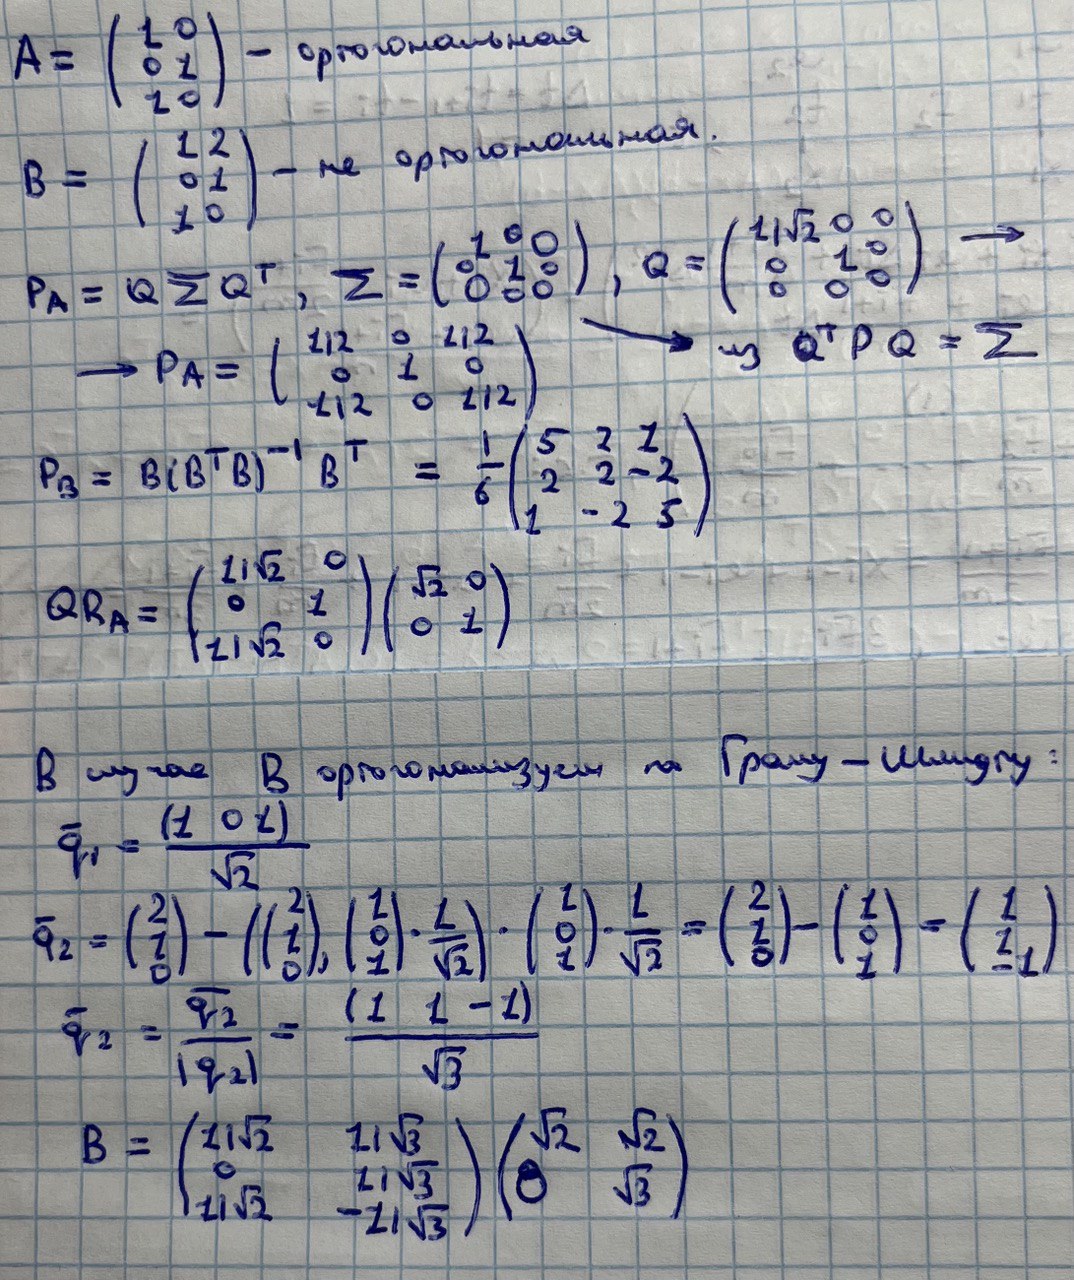 A = (1 0
0 1
1 0) - ортогональная
B = (1 2
0 1
1 0) - не ортогональная.
P_A = Q Σ Q^T, Σ = (1 0 0
0 1 0
0 0 0), Q = (1/√2 0 0
0 1 0
0 0 0) →
→ P_A = (1/2 0 1/2
0 1 0
1/2 0 1/2) → из Q^T P Q = Σ
P_B = B(B^T B)^-1 B^T = 1/6 (5 2 1
2 2 -2
1 -2 5)
QR_A = (1/√2 0
0 1
1/√2 0) (√2 0
0 1)
В случае B ортогонализуем по Граму-Шмидту:
q̄1 = (1 0 1)/√2
q̄2 = (2 1 0) - ((2 1 0), (1 0 1) · 1/√2) · (1 0 1) · 1/√2 = (2 1 0) - (1 0 1) = (1 1 -1)
q̄2 = q̄2/|q2| = (1 1 -1)/√3
B = (1/√2 1/√3
0 1/√3
1/√2 -1/√3) (√2 √2
0 √3)